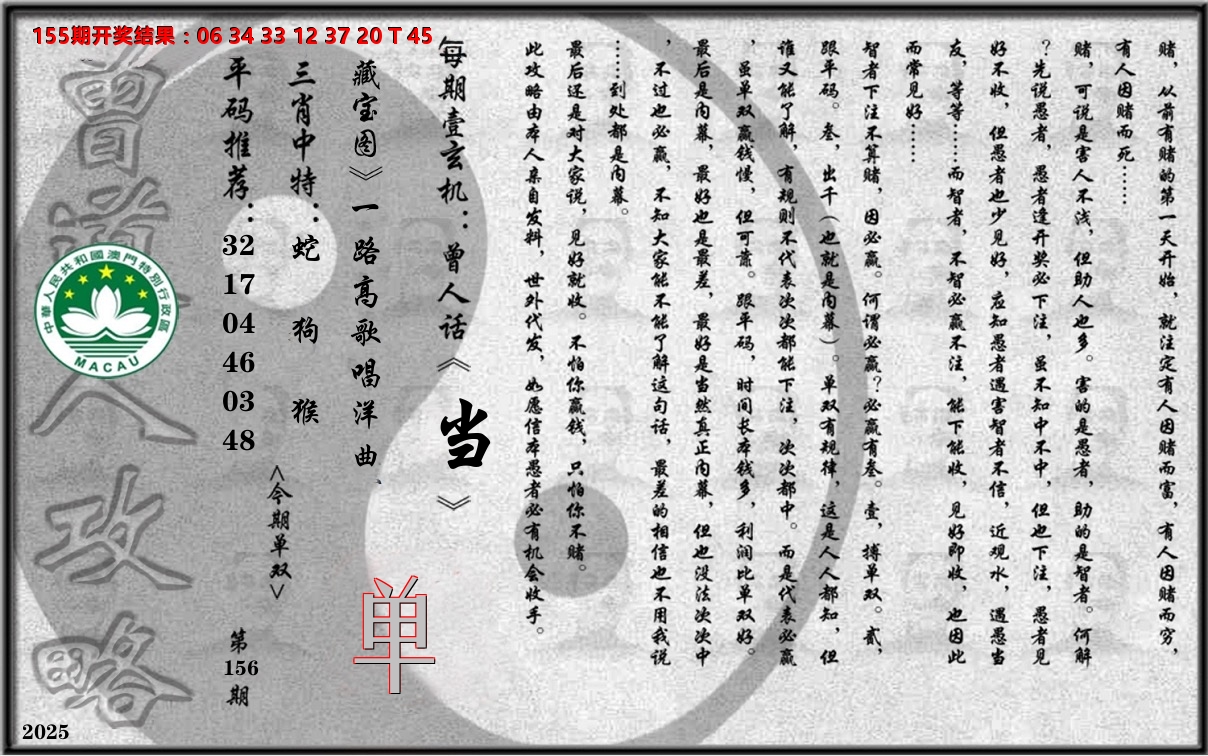 155期开奖结果：06 34 33 12 37 20 T 45
赌，从前有赌的第一天开始，就注定有人因赌而富，有人因赌而穷，
有人因赌而死……
赌，可说是害人不浅，但助人也多。害的是愚者，助的是智者。何解
？先说愚者，愚者逢开奖必下注，虽不知中不中，但也下注，愚者见
好不收，但愚者也少见好，应知愚者遇害智者不信，近观水，遇愚当
友，等等……而智者，不智必赢不注，能下能收，见好即收，也因此
而常见好……
智者下注不算赌，因必赢。何谓必赢？必赢有叁。壹，搏单双。贰，
跟平码。叁，出千（也就是内幕）。单双有规律，这是人人都知，但
谁又能了解，有规则不代表次次都能下注，次次都中。而是代表必赢
，虽单双赢钱慢，但可靠。跟平码，时间长本钱多，利润比单双好。
最后是内幕，最好也是最差，最好是当然真正内幕，但也没法次次中
，不过也必赢，不知大家能不能了解这句话，最差的相信也不用我说
……到处都是内幕。
最后还是对大家说，见好就收。不怕你赢钱，只怕你不赌。
此攻略由本人亲自发料，世外代发，如愿信本愚者必有机会收手。
每期壹玄机：曾人话《当》
藏宝图》一路高歌唱洋曲、
三肖中特：蛇 狗 猴
<今期单双>
单
平码推荐：32 17 04 46 03 48
第156期
曾道人攻略
中華人民共和國澳門特別行政區
MACAU
2025